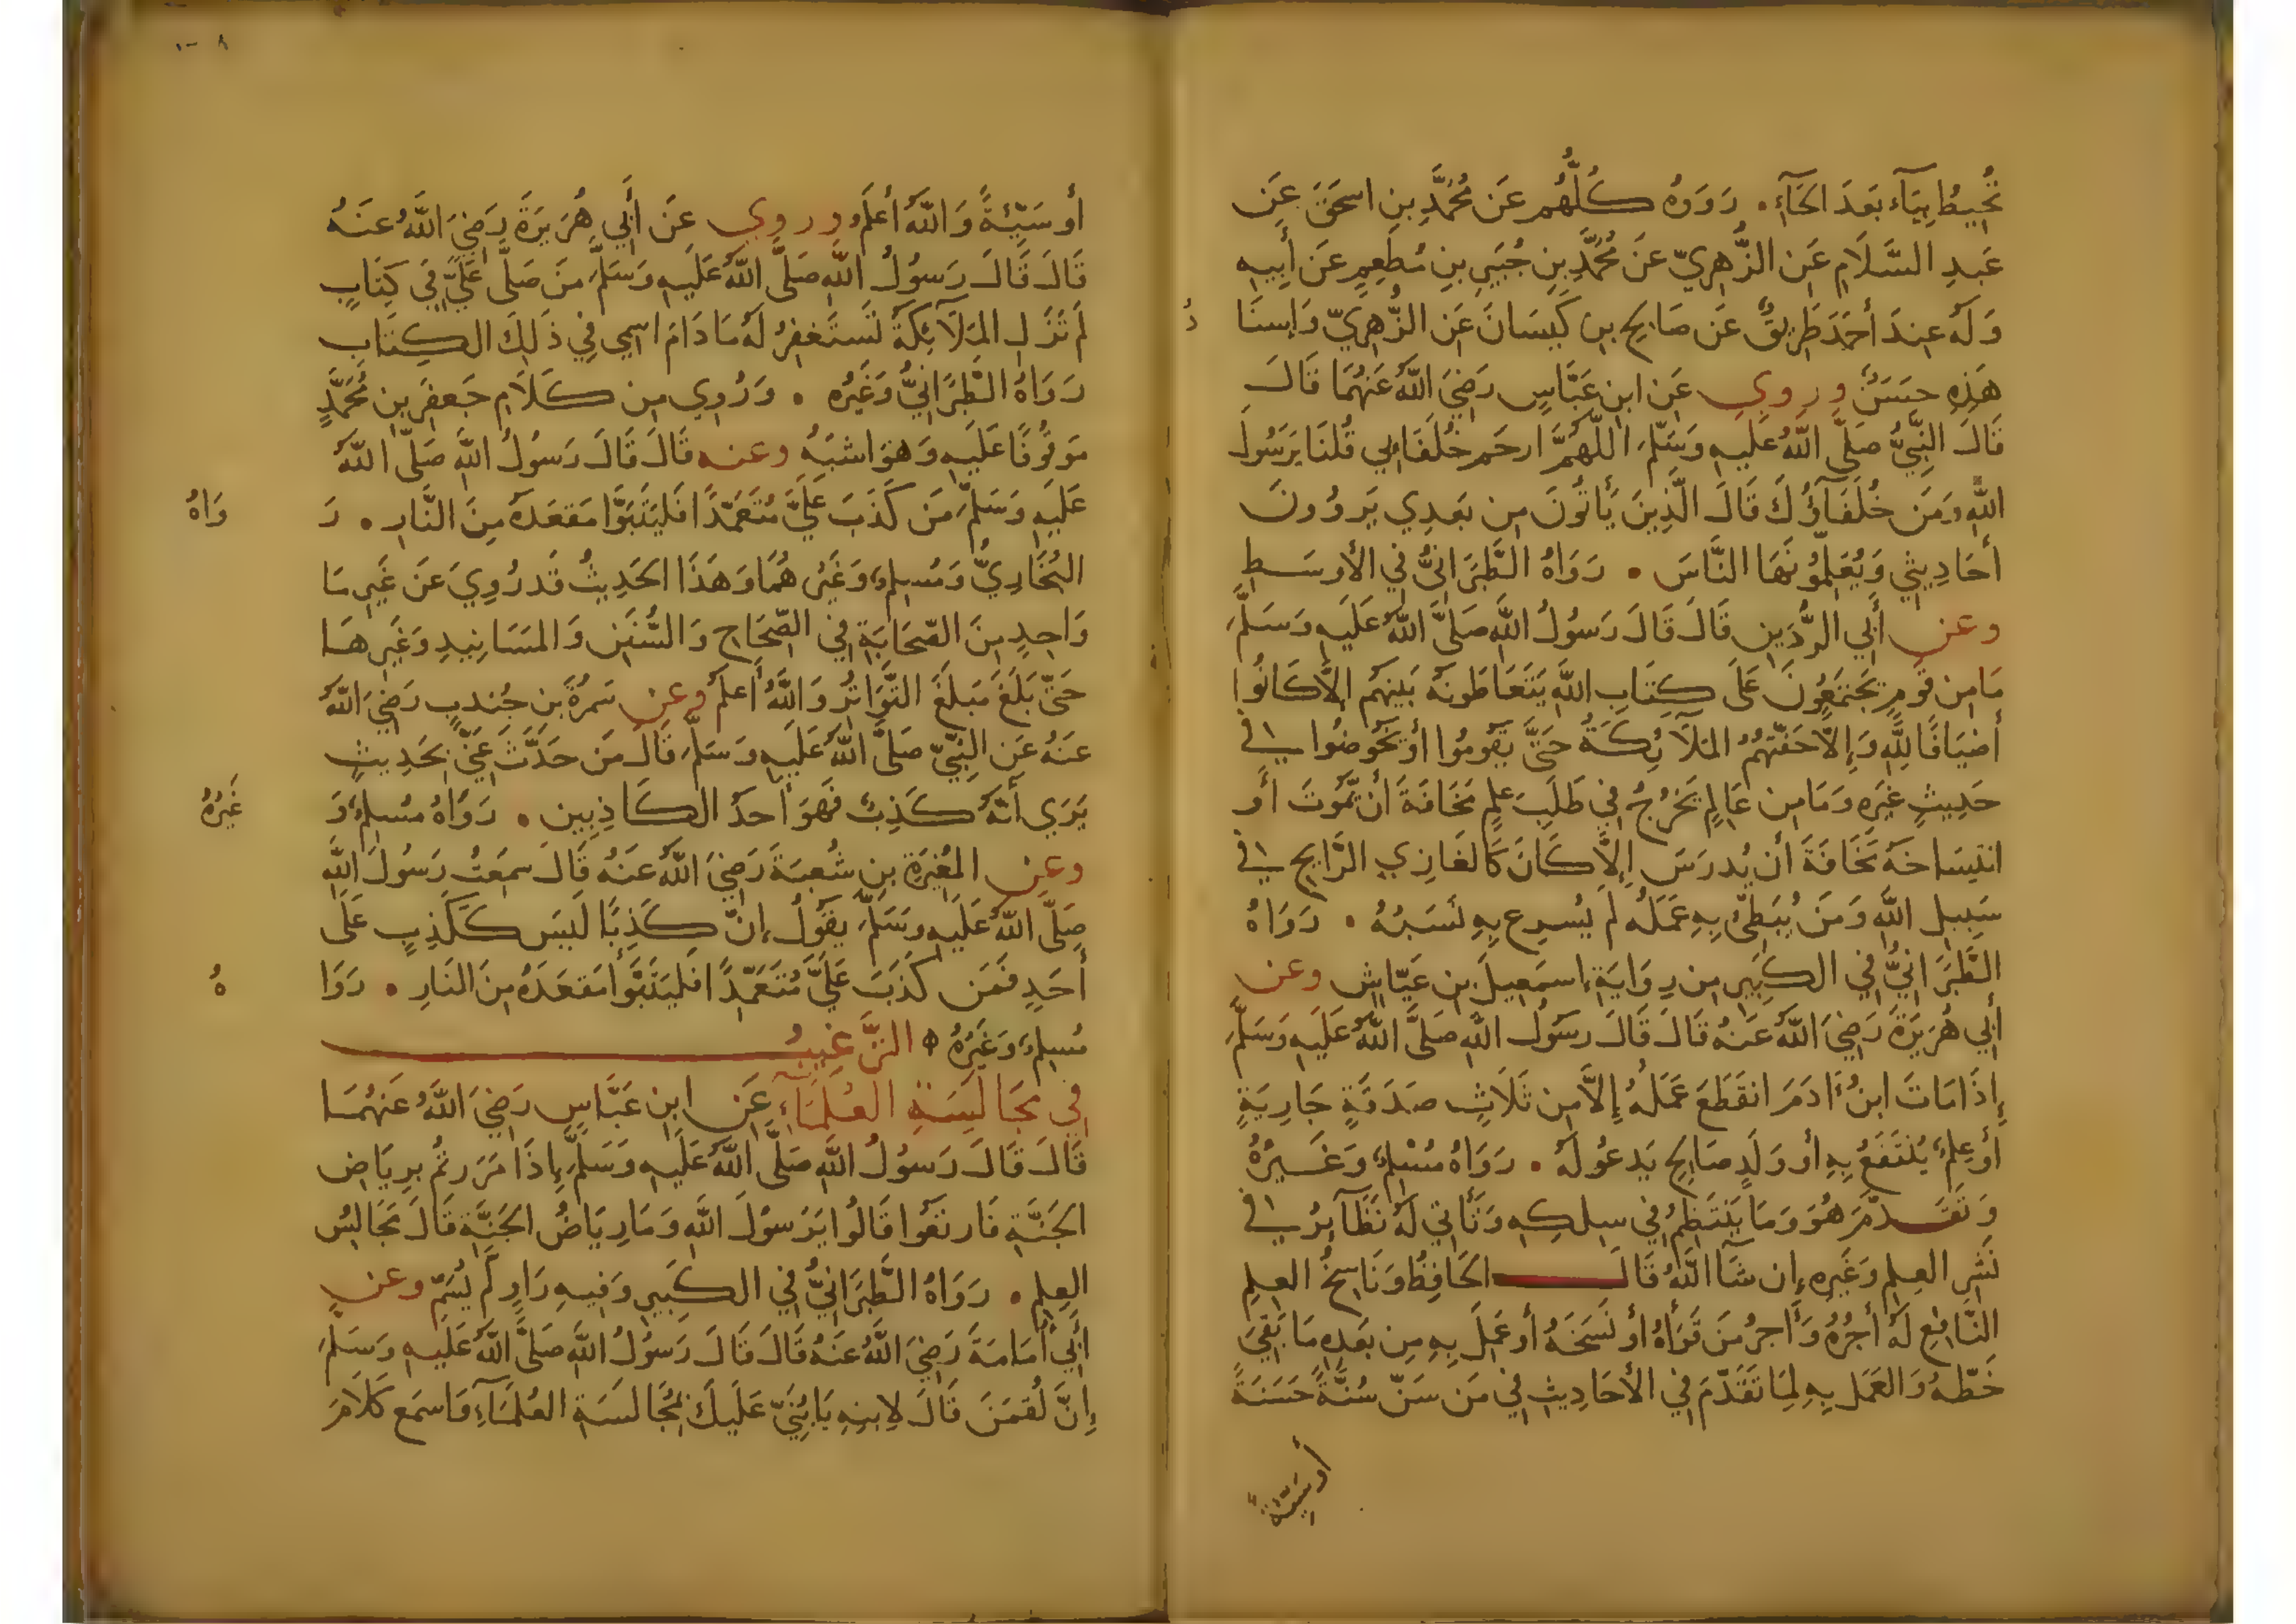 تُحِيطُ بِيَآء بَعَدَ الحَآءِ. رَوَوهُ كُلُّهُم عَن مُحَمَّدِ بنِ اسحَقَ عَن
عَبدِ السَّلَامِ عَنِ الزُّهرِيّ عَن مُحَمَّدِ بنِ جُبَيرِ بنِ مُطعِمٍ عَن أَبِيهِ
وَلَهُ عِندَ أحمَدَ طَرِيقٌ عَن صَالِحِ بنِ كَيسَانَ عَنِ الزُّهرِيّ وَإسنَا دُ
هَذِهِ حَسَنٌ وروي عَنِ ابنِ عَبَّاسٍ رَضِيَ اللَّهُ عَنهُمَا قَالَ
قَالَ النَّبِيُّ صَلَّى اللَّهُ عَلَيهِ وَسَلَّمَ اللَّهُمَّ ارحَم خُلَفَايِي قُلنَا يَرَسُولَ
اللَّهِ وَمَن خُلَفَآؤُكَ قَالَ الَّذِينَ يَأتُونَ مِن بَعدِي يَروُونَ
أحَادِيثِي وَيُعَلِّمُونَهَا النَّاسَ. رَوَاهُ الطَّبَرَانِيُّ فِي الأوسَطِ
وعن أَبِي الرُّدَينِ قَالَ قَالَ رَسُولُ اللَّهِ صَلَّى اللَّهُ عَلَيهِ وَسَلَّمَ
مَا مِن قَومٍ يَجتَمِعُونَ عَلَى كِتَابِ اللَّهِ يَتَعَاطَونَهُ بَينَهُم إلَّا كَانُوا
أضيَافًا لِلَّهِ وَإلَّا حَفَّتهُمُ المَلَآئِكَةُ حَتَّى يَقُومُوا أو يَخُوضُوا فِي
حَدِيثٍ غَيرِهِ وَمَا مِن عَالِمٍ يَخرُجُ فِي طَلَبِ عِلمٍ مَخَافَةَ أن يَمُوتَ أو
انتِسَاخَهُ مَخَافَةَ أن يُدرَسَ إلَّا كَانَ كَالغَازِي الرَّايِحِ فِي
سَبِيلِ اللَّهِ وَمَن يُبَطِّئ بِهِ عَمَلُهُ لَم يُسرِع بِهِ نَسَبُهُ. رَوَاهُ
الطَّبَرَانِيُّ فِي الكَبِيرِ مِن رِوَايَةِ إسمَعِيلَ بنِ عَيَّاشٍ وعن
أَبِي هُرَيرَةَ رَضِيَ اللَّهُ عَنهُ قَالَ قَالَ رَسُولُ اللَّهِ صَلَّى اللَّهُ عَلَيهِ وَسَلَّمَ
إذَا مَاتَ ابنُ ءَادَمَ انقَطَعَ عَمَلُهُ إلَّا مِن ثَلَاثٍ صَدَقَةٍ جَارِيَةٍ
أو عِلمٍ يُنتَفَعُ بِهِ أو وَلَدٍ صَالِحٍ يَدعُو لَهُ. رَوَاهُ مُسلِمٌ وَغَيرُهُ
وَتَقَدَّمَ هُوَ وَمَا يَنتَظِمُ فِي سِلكِهِ وَتَأتِي لَهُ نَظَآيِرُ فِي
نَشرِ العِلمِ وَغَيرِهِ إن شَآ اللَّهُ قَالَ الحَافِظُ وَنَاسِخُ العِلمِ
النَّافِعِ لَهُ أجرُهُ وَأجرُ مَن قَرَأهُ أو نَسَخَهُ أو عَمِلَ بِهِ مِن بَعدِهِ مَا بَقِيَ
خَطُّهُ وَالعَمَلُ بِهِ لِمَا تَقَدَّمَ فِي الأحَادِيثِ فِي مَن سَنَّ سُنَّةً حَسَنَةً
أو سَيِّئَةً
٨ ٠١
أو سَيِّئَةً وَاللَّهُ أعلَمُ وروي عَن أَبِي هُرَيرَةَ رَضِيَ اللَّهُ عَنهُ
قَالَ قَالَ رَسُولُ اللَّهِ صَلَّى اللَّهُ عَلَيهِ وَسَلَّمَ مَن صَلَّى عَلَيَّ فِي كِتَابٍ
لَم تَزَلِ المَلَآئِكَةُ تَستَغفِرُ لَهُ مَا دَامَ اسمِي فِي ذَلِكَ الكِتَابِ
رَوَاهُ الطَّبَرَانِيُّ وَغَيرُه. وَرُوِي مِن كَلَامِ جَعفَرِ بنِ مُحَمَّدٍ
مَوقُوفًا عَلَيهِ وَهوَ اشبَهُ وعنه قَالَ قَالَ رَسُولُ اللَّهِ صَلَّى اللَّهُ
عَلَيهِ وَسَلَّمَ مَن كَذَبَ عَلَيَّ مُتَعَمِّدًا فَليَتَبَوَّا مَقعَدَهُ مِنَ النَّارِ. رَ وَاهُ
البُخَارِيُّ وَمُسلِمٌ وَغَيرُهُمَا وَهَذَا الحَدِيثُ قَد رُوِيَ عَن غَيرِ مَا
وَاحِدٍ مِنَ الصَّحَابَةِ فِي الصِّحَاحِ وَالسُّنَنِ وَالمَسَانِيدِ وَغَيرِهَا
حَتَّى بَلَغَ مَبلَغَ التَّوَاتُرِ وَاللَّهُ أعلَمُ وعن سَمُرَةَ بنِ جُندبٍ رَضِيَ اللَّهُ
عَنهُ عَنِ النَّبِيّ صَلَّى اللَّهُ عَلَيهِ وَسَلَّمَ قَالَ مَن حَدَّثَ عَنِّي بِحَدِيثٍ
يَرَى أنَّهُ كَذِبٌ فَهوَ أحدُ الكَاذِبِين. رَوَاهُ مُسلِمٌ وَ غَيرُهُ
وعن المُغِيرَةِ بنِ شُعبَةَ رَضِيَ اللَّهُ عَنهُ قَالَ سَمِعتُ رَسُولَ اللَّهِ
صَلَّى اللَّهُ عَلَيهِ وَسَلَّمَ يَقُولُ إنَّ كَذِبًا لَيسَ كَكَذِبٍ عَلَى
أحَدٍ فَمَن كَذَبَ عَلَيَّ مُتَعَمِّدًا فَليَتَبَوَّأ مَقعَدَهُ مِنَ النَارِ. رَوَا هُ
مُسلِمٌ وَغَيرُهُ التَّرغِيبُ
فِي مُجَالَسَةِ العُلَمَآءِ عَنِ ابنِ عَبَّاسٍ رَضِيَ اللَّهُ عَنهُمَا
قَالَ قَالَ رَسُولُ اللَّهِ صَلَّى اللَّهُ عَلَيهِ وَسَلَّمَ إذَا مَرَرتُم بِرِيَاضِ
الجَنَّةِ فَارتَعُوا قَالُوا يَرَسُولَ اللَّهِ وَمَا رِيَاضُ الجَنَّةِ قَالَ مَجَالِسُ
العِلمِ. رَوَاهُ الطَّبَرَانِيُّ فِي الكَبِيرِ وَفِيهِ رَاوٍ لَم يُسَمّ وعن
أَبِي أُمَامَةَ رَضِيَ اللَّهُ عَنهُ قَالَ قَالَ رَسُولُ اللَّهِ صَلَّى اللَّهُ عَلَيهِ وَسَلَّمَ
إنَّ لُقمَنَ قَالَ لِابنِهِ يَا بُنَيّ عَلَيكَ بِمُجَالَسَةِ العُلَمَآءِ وَاسمَع كَلَامَ